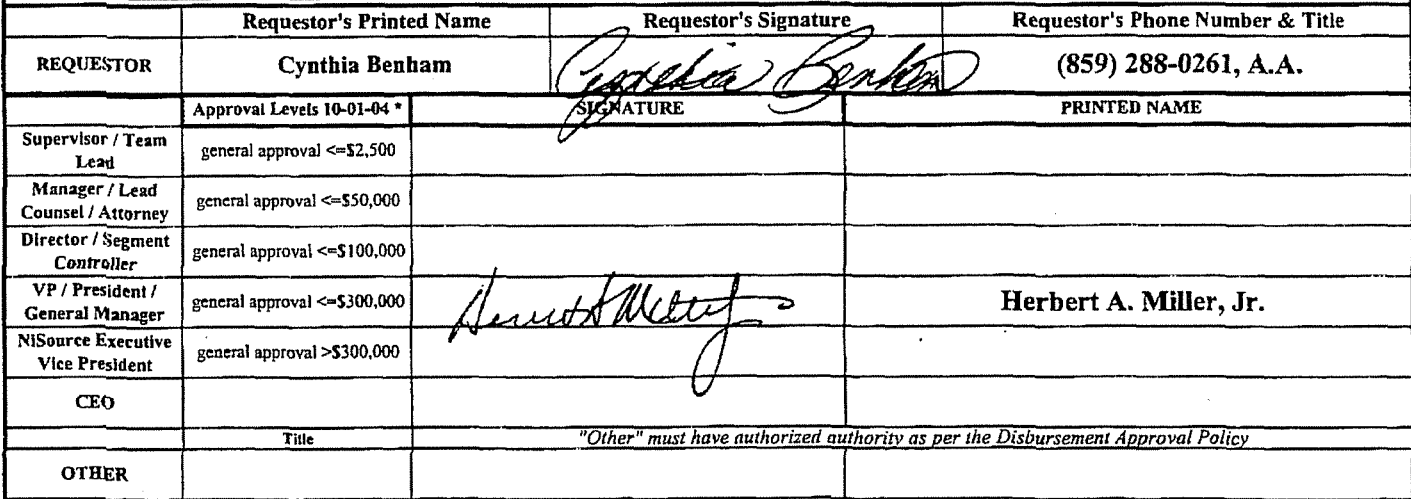 Requestor's Printed Name Requestor's Signature Requestor's Phone Number & Title
REQUESTOR Cynthia Benham Cynthia Benham (859) 288-0261, A.A.
Approval Levels 10-01-04 * SIGNATURE PRINTED NAME
Supervisor / Team
Lead general approval <=$2,500
Manager / Lead
Counsel / Attorney general approval <=$50,000
Director / Segment
Controller general approval <=$100,000
VP / President /
General Manager general approval <=$300,000 Herbert A. Miller, Jr.
NiSource Executive
Vice President general approval >$300,000
CEO
Title "Other" must have authorized authority as per the Disbursement Approval Policy
OTHER